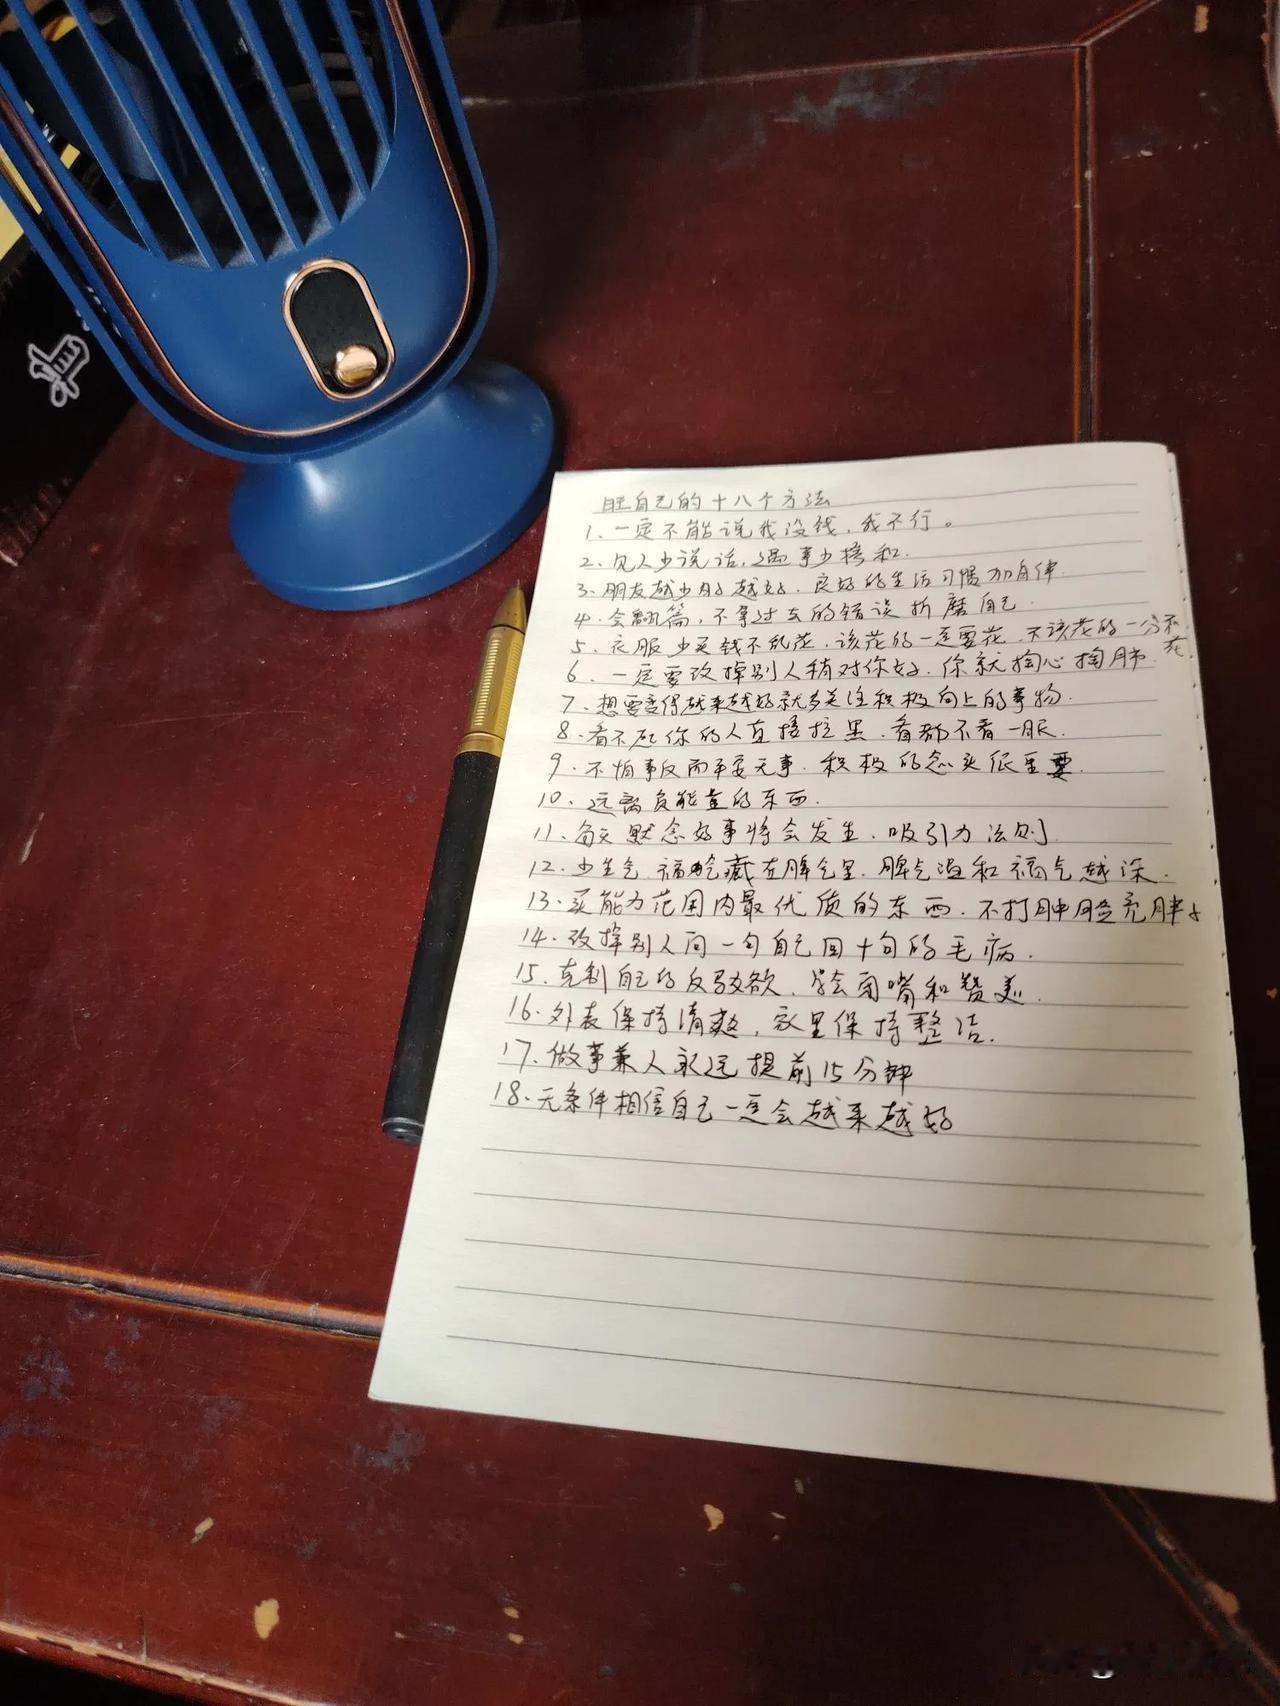 旺自己的十八个方法
1、一定不能说我没钱,我不行。
2、见人少说话,遇事少掺和.
3、朋友越少越好.良好的生活习惯加自律.
4、会翻篇,不拿过去的错误折磨自己.
5、衣服少买钱不乱花,该花的一定要花.不该花的一分不
花.
6、一定要改掉别人稍对你好.你就掏心掏肺.
7、想要变得越来越好就多关注积极向上的事物.
8、看不起你的人直接拉黑.看都不看一眼.
9、不怕事反而平安无事.积极的念头很重要.
10、远离负能量的东西.
11、每天默念好事将会发生.吸引力法则.
12、少生气.福气藏在脾气里.脾气温和福气越深.
13、买能力范围内最优质的东西.不打肿脸充胖子
14、改掉别人问一句自己回十句的毛病.
15、克制自己的反驳欲.学会闭嘴和赞美.
16、外表保持清爽,家里保持整洁.
17、做事兼人永远提前15分钟
18、无条件相信自己一定会越来越好